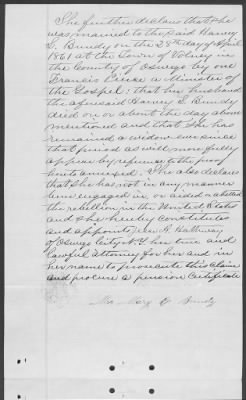 She further declares that she
was married to the said Harvey
G. Bundy on the 28th day of April
1861 at the town of Volney in
the County of Oswego by one
Francis a Minister of
the Gospel; that her husband
the aforesaid Harvey G. Bundy
died on or about the day above
mentioned and that She has
remained a widow ever since
that period as will more fully
appear by reference to the proof
hereto annexed. She also declares
that she has not in any manner
been engaged in, or aided or abetted
the rebellion in the United States
and she hereby constitutes
and appoints
of Oswego City N.Y. her true and
lawful attorney for her and in
her name to prosecute this claim
and procure a pension certificate
Mrs Mary E Bundy